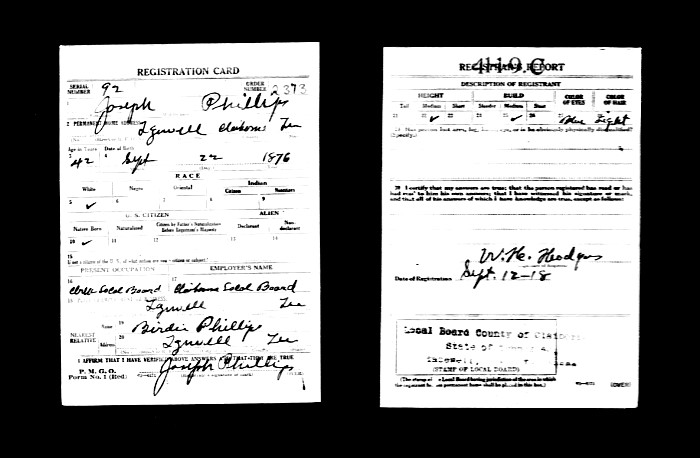 REGISTRATION CARD
SERIAL NUMBER 92 ORDER NUMBER 2373
1 Joseph Phillips
2 PERMANENT HOME ADDRESS
Tazewell Claiborne Ten
Age in Years Date of Birth
3 42 4 Sept 22 1876
RACE
White Negro Oriental Indian
Citizen Noncitizen
5 ✓ 6 7 8 9
U. S. CITIZEN ALIEN
Native Born Naturalized Citizen by Father's Naturalization Before Registrant's Majority Declarant Non-declarant
10 ✓ 11 12 13 14
15
If not a citizen of the U. S., of what nation are you a citizen or subject?
PRESENT OCCUPATION EMPLOYER'S NAME
16 Clerk Local Board 17 Claiborne Local Board
18
Tazewell Ten
NEAREST RELATIVE
Name 19 Birdie Phillips
Address 20 Tazewell Ten
I AFFIRM THAT I HAVE VERIFIED ABOVE ANSWERS AND THAT THEY ARE TRUE
P. M. G. O.
Form No. 1 (Red) Joseph Phillips
REGISTRAR'S REPORT
41-1-9. C
DESCRIPTION OF REGISTRANT
HEIGHT BUILD COLOR OF EYES COLOR OF HAIR
Tall Medium Short Slender Medium Stout
21 22 ✓ 23 24 25 ✓ 26 27 Blue Light
29 Has person lost arm, leg, or is he obviously physically disqualified?
(Specify.)
30 I certify that my answers are true; that the person registered has read or has
had read to him his own answers; that I have witnessed his signature or mark,
and that all of his answers of which I have knowledge are true, except as follows:
W. H. Hodges
Date of Registration Sept. 12-18
Local Board County of Claiborne
State of
Tazewell,
(STAMP OF LOCAL BOARD)
(The stamp of the Local Board having jurisdiction of the area in which
the registrant has his permanent home shall be placed in this box.)